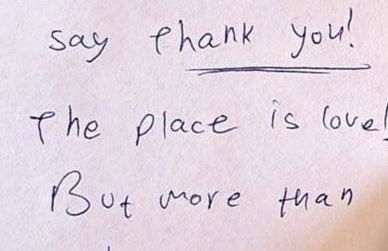 say thank you!
The place is love
But more than